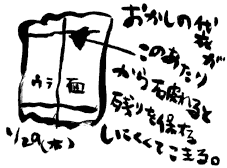 おかしの袋が
このあたり
から破れると
残りを保存
しにくくてこまる。
ウラ面
1/29(木)